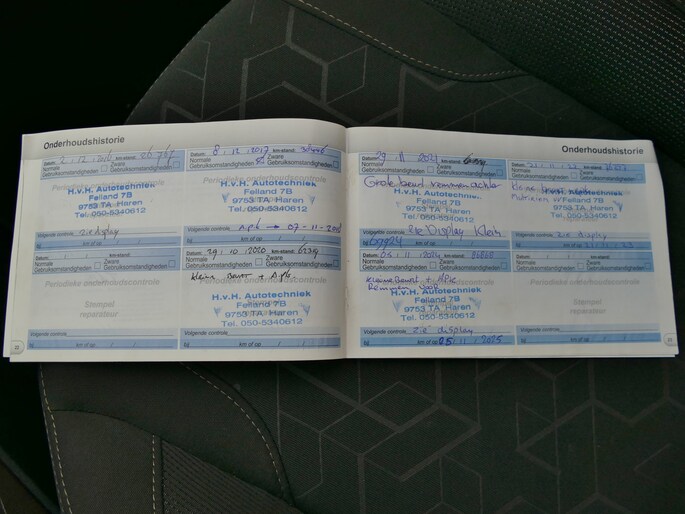 Onderhoudshistorie
Datum: 2 , 12 , 2016 km-stand: 26767
Normale Zware
Gebruiksomstandigheden Gebruiksomstandigheden
Periodieke onderhoudscontrole
H.v.H. Autotechniek
Felland 7B
9753 TA Haren
Tel. 050-5340612
Volgende controle: zie display
bij km of op
Datum: 8 , 12 , 2017 km-stand:
Normale Zware
Gebruiksomstandigheden
Periodieke onderhoudscontrole
H.v.H. Autotechniek
Felland 7B
9753 TA Haren
Tel. 050-5340612
Volgende controle:
bij km of op
Datum: km-stand:
Normale Zware
Gebruiksomstandigheden Gebruiksomstandigheden
Periodieke onderhoudscontrole
Stempel
reparateur
Volgende controle:
bij km of op
Datum: 29 , 10 , 2020 km-stand:
Normale Zware
Gebruiksomstandigheden Gebruiksomstandigheden
kleine beurt + Apk
Periodieke onderhoudscontrole
H.v.H. Autotechniek
Felland 7B
9753 TA Haren
Tel. 050-5340612
Volgende controle:
bij km of op
Onderhoudshistorie
Datum: 29 , 11 , 2021 km-stand:
Normale Zware
Gebruiksomstandigheden Gebruiksomstandigheden
Grote beurt remmen achter
H.v.H. Autotechniek
Felland 7B
9753 TA Haren
Tel. 050-5340612
Volgende controle: zie Display Klein
bij km of op
Datum: km-stand:
Normale Zware
Gebruiksomstandigheden Gebruiksomstandigheden
kleine beurt
H.v.H. Autotechniek
Felland 7B
9753 TA Haren
Tel. 050-5340612
Volgende controle: zie display
bij km of op
Datum: 05 , 11 , 2024 km-stand:
Normale Zware
Gebruiksomstandigheden Gebruiksomstandigheden
kleine beurt +
Remmen voor
H.v.H. Autotechniek
Felland 7B
9753 TA Haren
Tel. 050-5340612
Volgende controle: zie display
bij km of op 05 , 11 , 2025
Datum: km-stand:
Normale Zware
Gebruiksomstandigheden Gebruiksomstandigheden
Periodieke onderhoudscontrole
Stempel
reparateur
Volgende controle:
bij km of op